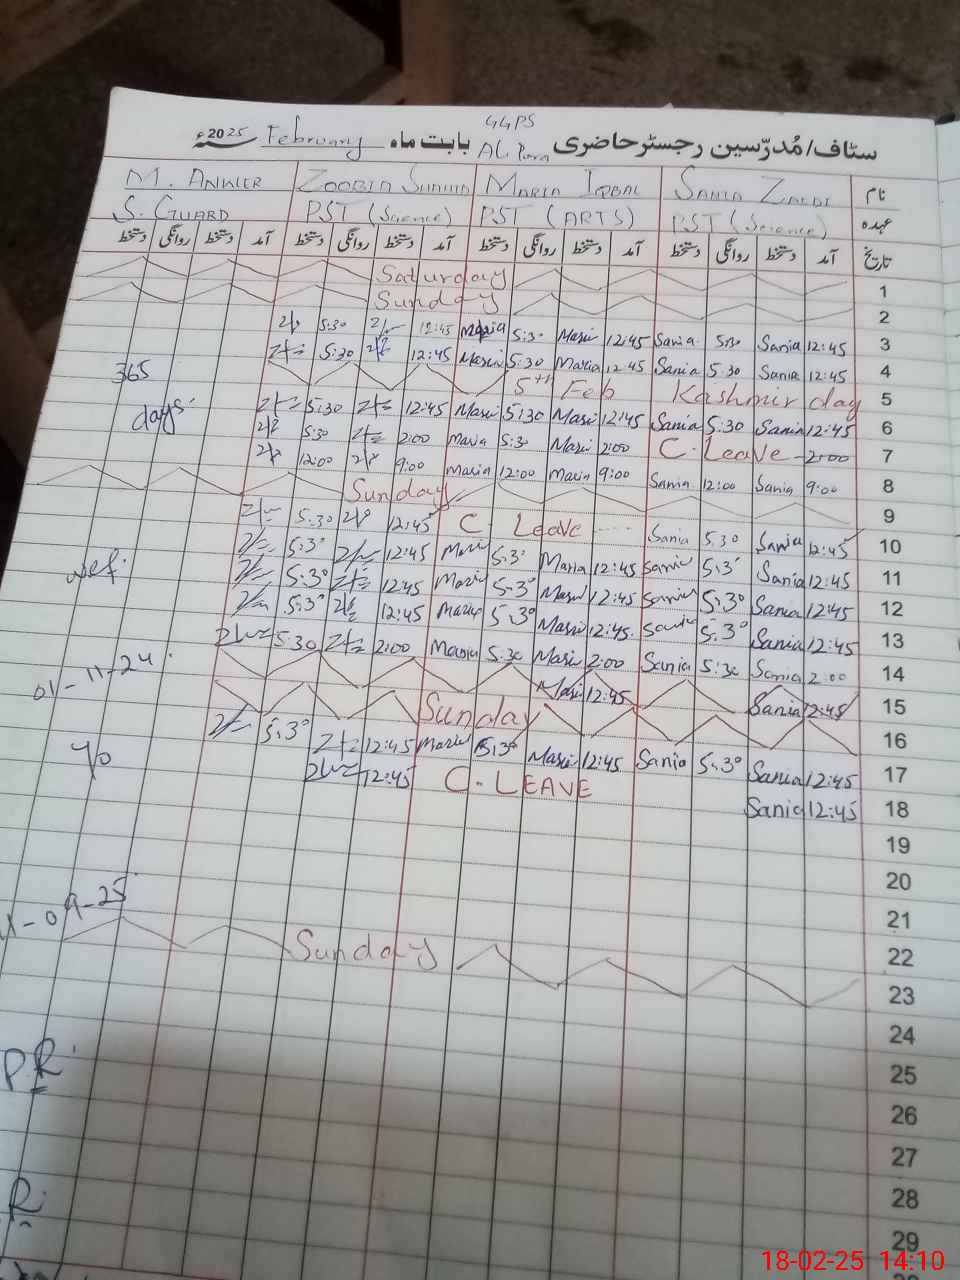 GGPS
سٹاف/مُدرّسین رجسٹر حاضری AL Pora بابت ماہ February 2025ء
نام Sania Zaidi Maria Iqbal Zoobia Shahid M. Anwer
عہدہ PST (Science) PST (ARTS) PST (Science) S. Guard
تاریخ آمد دستخط روانگی دستخط آمد دستخط روانگی دستخط آمد دستخط روانگی دستخط آمد دستخط روانگی دستخط
Saturday 1
Sunday 2
5:30 12:45 Maria 5:30 Maria 12:45 Sania 5:30 Sania 12:45 3
5:30 12:45 Maria 5:30 Maria 12:45 Sania 5:30 Sania 12:45 4
365 5th Feb Kashmir day 5
days 5:30 12:45 Maria 5:30 Maria 12:45 Sania 5:30 Sania 12:45 6
5:30 2:00 Maria 5:30 Maria 2:00 C. Leave - 2:00 7
12:00 9:00 Maria 12:00 Maria 9:00 Sania 12:00 Sania 9:00 8
Sunday 9
5:30 12:45 C. Leave Sania 5:30 Sania 12:45 10
wef. 5:30 12:45 Maria 5:30 Maria 12:45 Sania 5:30 Sania 12:45 11
5:30 12:45 Maria 5:30 Maria 12:45 Sania 5:30 Sania 12:45 12
5:30 12:45 Maria 5:30 Maria 12:45 Sania 5:30 Sania 12:45 13
01-11-24 5:30 2:00 Maria 5:30 Maria 2:00 Sania 5:30 Sania 2:00 14
Maria 12:45 Sania 12:45 15
Sunday 16
5:30 12:45 Maria 5:30 Maria 12:45 Sania 5:30 Sania 12:45 17
12:45 C. LEAVE Sania 12:45 18
19
20
-09-25 21
Sunday 22
23
24
P.R. 25
26
27
R. 28
29
18-02-25 14:10